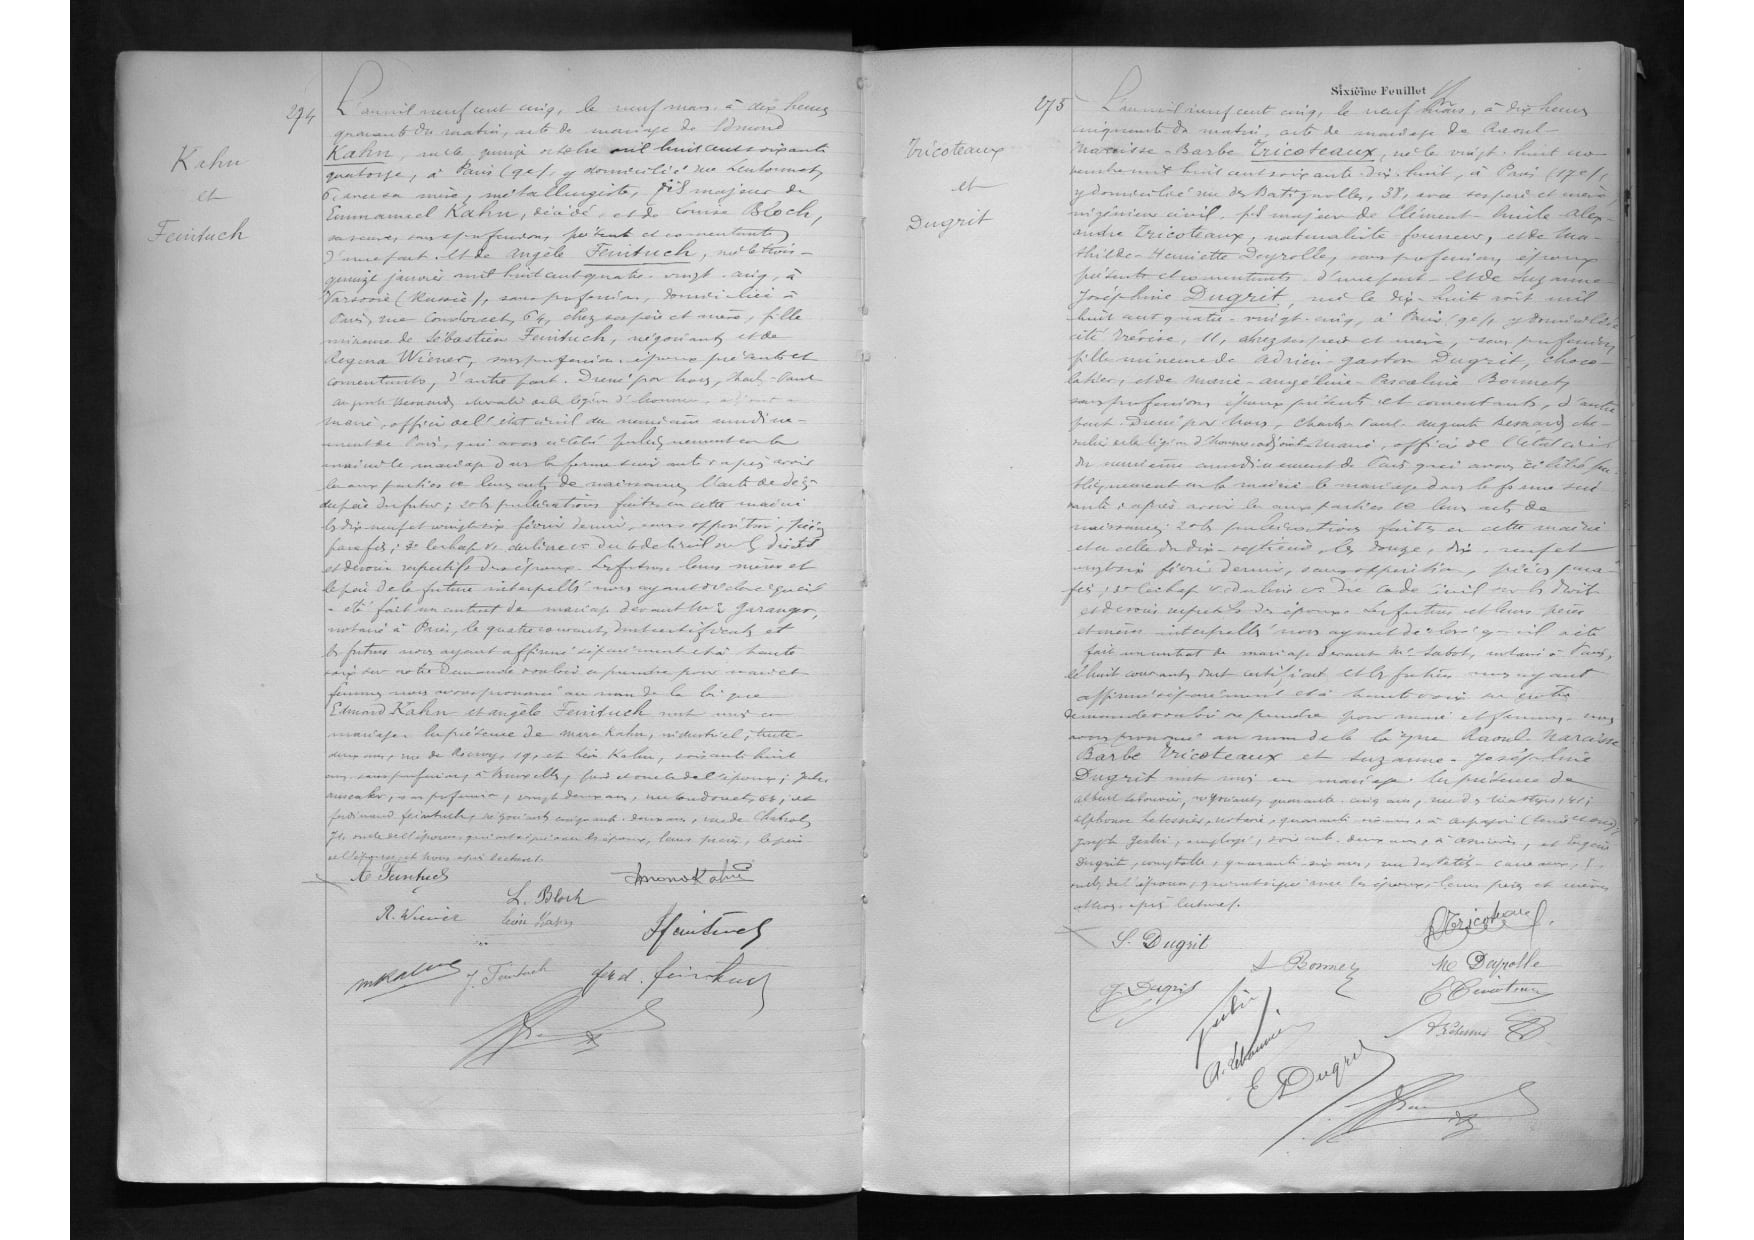 274
Kahn
et
Feintuch
L'an mil neuf cent cinq, le neuf mars, à dix heures
quarante du matin, acte de mariage de Edmond
Kahn, né le quinze octobre mil huit cent soixante
quatorze, à Paris (9e), y domicilié rue
6, avec sa mère, métallurgiste, fils majeur de
Emmanuel Kahn, décédé, et de Louise Bloch,
sa veuve, sans profession, présente et consentante,
d'une part. Et de Angèle Feintuch, née le trois-
quinze janvier mil huit cent quatre-vingt-cinq, à
Varsovie (Russie), sans profession, domiciliée à
Paris, rue Condorcet, 64, chez ses père et mère, fille
mineure de Sébastien Feintuch, négociant, et de
Regina Wiener, sans profession, époux présents et
consentants, d'autre part. Dressé par nous, Charles-Paul-
Auguste Bernard, chevalier de la légion d'honneur, adjoint au
maire, officier de l'état civil du neuvième arrondisse-
ment de Paris, qui avons célébré publiquement en la
mairie le mariage dans la forme suivante: après avoir
lu aux parties 1o leurs actes de naissance, l'acte de décès
du père du futur; 2o les publications faites en cette mairie
les dix-neuf et vingt-six février dernier, sans opposition, pièces
parafées; 3o le chap. VI du livre V du code civil sur les droits
et devoirs respectifs des époux. Les futurs, leurs mères et
le père de la future interpellés nous ayant déclaré qu'il
a été fait un contrat de mariage devant Me Garanger,
notaire à Paris, le quatre courant, dont certificat, et
les futurs nous ayant affirmé séparément et à haute
voix sur notre demande vouloir se prendre pour mari et
femme, nous avons prononcé au nom de la loi que
Edmond Kahn et Angèle Feintuch sont unis en
mariage. En présence de Marc Kahn, industriel, trente-
deux ans, rue de 19, et Léon Kahn, soixante-huit
ans, sans profession, à Bruxelles, frère et oncle de l'époux; Jules
sans profession, vingt-deux ans, rue Condorcet, 64; et
Ferdinand Feintuch, négociant, cinquante-deux ans, rue de Chabrol,
oncle de l'épouse, qui ont signé avec les époux, leurs mères, le père
de l'épouse, et nous après lecture.
A Feintuch
Edmond Kahn
L. Bloch
R. Wiener
Léon Kahn
S Feintuch
M Kahn
J. Feintuch
ferd. feintuch
Sixième Feuillet
275
Tricoteaux
et
Dugrit
L'an mil neuf cent cinq, le neuf mars, à dix heures
cinquante du matin, acte de mariage de Raoul-
Narcisse-Barbe Tricoteaux, né le vingt-huit no-
vembre mil huit cent soixante-dix-huit, à Paris (17e),
y domicilié rue des Batignolles, 38, avec ses père et mère,
ingénieur civil, fils majeur de Clément-Emile-Alex-
andre Tricoteaux, naturaliste fourreur, et de Ma-
thilde-Henriette Deyrolle, sans profession, époux
présents et consentants, d'une part. Et de Suzanne-
Joséphine Dugrit, née le dix-huit août mil
huit cent quatre-vingt-cinq, à Paris (9e), y domiciliée
cité Trévise, 11, chez ses père et mère, sans profession,
fille mineure de Adrien-Gaston Dugrit, choco-
latier, et de Marie-Angéline-Pascaline Bonnet,
sans profession, époux présents et consentants, d'autre
part. Dressé par nous, Charles-Paul-Auguste Bernard, che-
valier de la légion d'honneur, adjoint au maire, officier de l'état civil
du neuvième arrondissement de Paris, qui avons célébré pu-
bliquement en la mairie le mariage dans la forme sui-
vante: après avoir lu aux parties 1o leurs actes de
naissance; 2o les publications faites en cette mairie
et en celle du dix-septième, les douze, dix-neuf et
vingt-six février dernier, sans opposition, pièces para-
fées; 3o le chap. VI du livre V du code civil sur les droits
et devoirs respectifs des époux. Les futurs et leurs pères
et mères interpellés nous ayant déclaré qu'il a été
fait un contrat de mariage devant Me Sabot, notaire à Paris,
le huit courant, dont certificat, et les futurs nous ayant
affirmé séparément et à haute voix sur notre
demande vouloir se prendre pour mari et femme, nous
avons prononcé au nom de la loi que Raoul-Narcisse-
Barbe Tricoteaux et Suzanne-Joséphine
Dugrit sont unis en mariage. En présence de
Albert Lebouvier, négociant, quarante-cinq ans, rue des Martyrs, 41;
Alphonse notaire, quarante-neuf ans, à
Joseph employé, soixante-deux ans, à Asnières, et Eugène
Dugrit, comptable, quarante-six ans, rue
oncles de l'épouse, qui ont signé avec les époux, leurs pères et mères
et nous, après lecture.
S. Dugrit
R Tricoteaux
A Bonnet
M Deyrolle
G Dugrit
E Tricoteaux
A. Lebouvier
E Dugrit